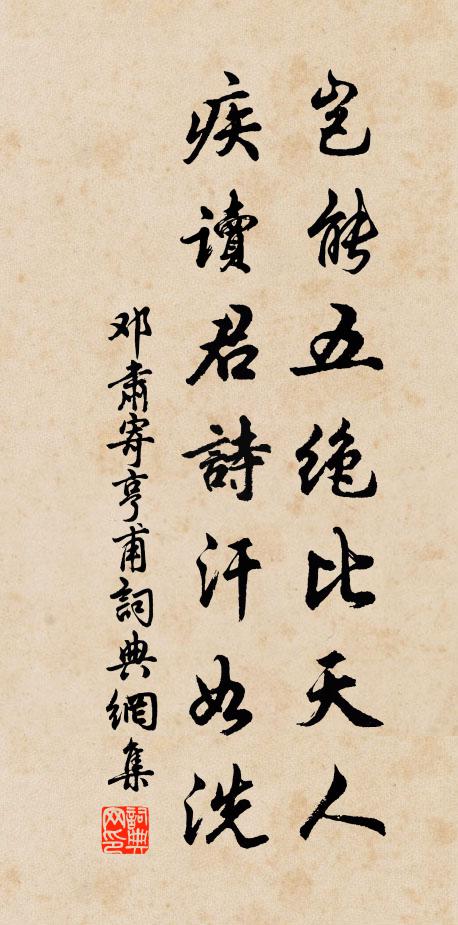 岂能五绝比天人
疾讀君詩汗如洗
邓肅寄亨甫詞典網集
詞典网印